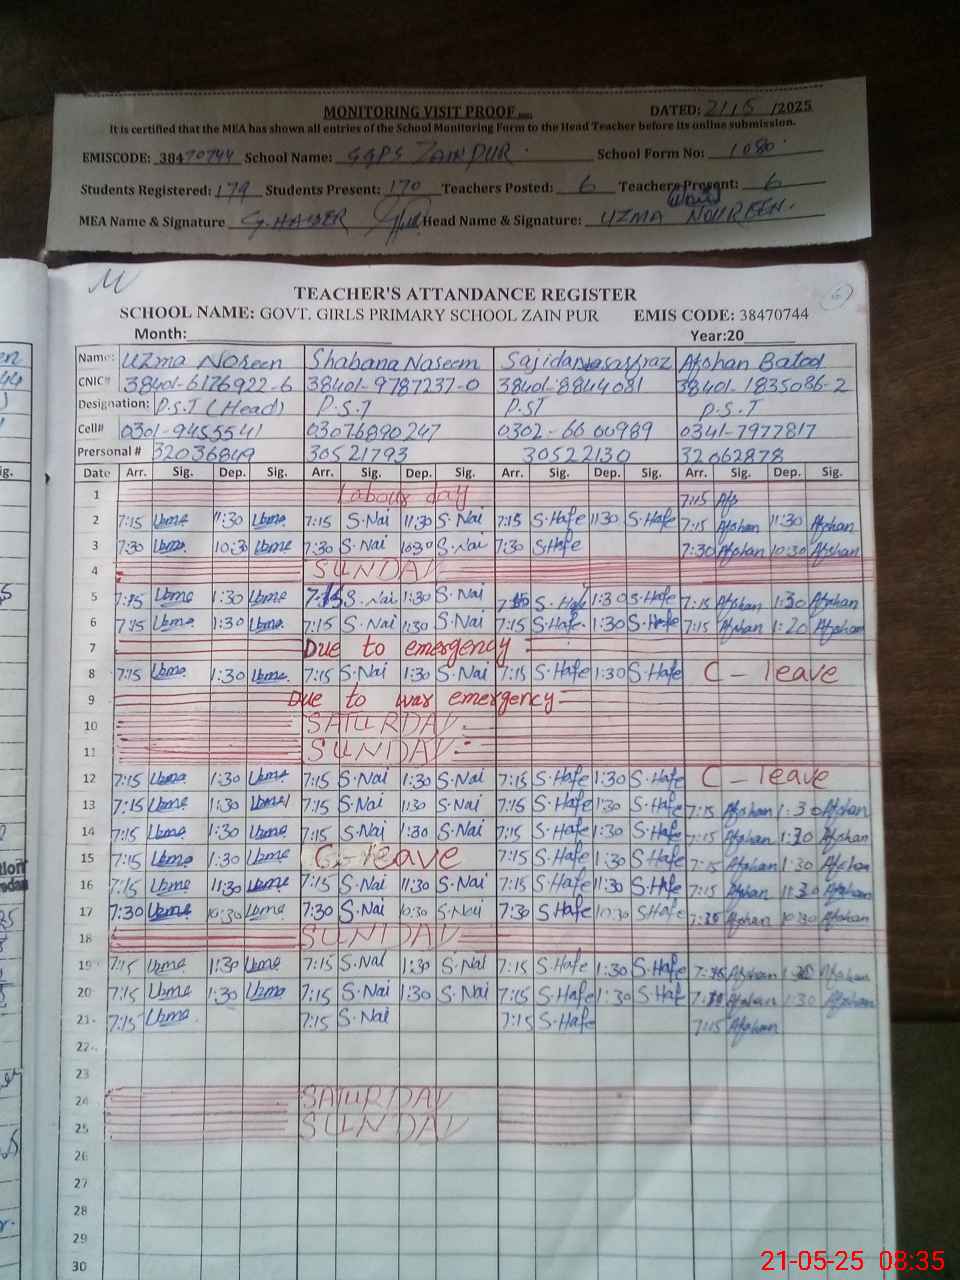 MONITORING VISIT PROOF DATED: 21/5/2025
It is certified that the MEA has shown all entries of the School Monitoring Form to the Head Teacher before its online submission.
EMISCODE: 38470744 School Name: GGPS ZAINPUR School Form No: 1080
Students Registered: 179 Students Present: 170 Teachers Posted: 6 Teachers Present: 6
MEA Name & Signature G.HAIDER Head Name & Signature: UZMA NOUREEN.
TEACHER'S ATTANDANCE REGISTER
SCHOOL NAME: GOVT. GIRLS PRIMARY SCHOOL ZAIN PUR EMIS CODE: 38470744
Month: Year:20
Name: Uzma Noreen Shabana Naseem Afshan Batool
CNIC# 38401-6176922-6 38401-9787237-0 38401-8844081 38401-1835086-2
Designation: P.S.T (Head) P.S.T P.ST P.S.T
Cell# 0301-9455541 03076890247 0302-6600989 0341-7977817
Prersonal # 32036849 30521793 30522130 32062878
Date Arr. Sig. Dep. Sig. Arr. Sig. Dep. Sig. Arr. Sig. Dep. Sig. Arr. Sig. Dep. Sig.
1 Labour day 7:15 Afs
2 7:15 Ubme 11:30 Ubme 7:15 S.Nai 11:30 S.Nai 7:15 S.Hafe 11:30 S.Hafe 7:15 Afshan 11:30 Afshan
3 7:30 Ubme 10:30 Ubme 7:30 S.Nai 10:30 S.Nai 7:30 S.Hafe 7:30 Afshan 10:30 Afshan
4 SUNDAY
5 7:15 Ubme 1:30 Ubme 7:15 S.Nai 1:30 S.Nai S.Hafe 1:30 S.Hafe 7:15 Afshan 1:30 Afshan
6 7:15 Ubme 1:30 Ubme 7:15 S.Nai 1:30 S.Nai 7:15 S.Hafe 1:30 S.Hafe 7:15 Afshan 1:20 Afshan
7 Due to emergency
8 7:15 Ubme 1:30 Ubme 7:15 S.Nai 1:30 S.Nai 7:15 S.Hafe 1:30 S.Hafe C - leave
9 Due to war emergency
10 SATURDAY
11 SUNDAY
12 7:15 Ubme 1:30 Ubme 7:15 S.Nai 1:30 S.Nai 7:15 S.Hafe 1:30 S.Hafe C - leave
13 7:15 Ubme 1:30 Ubme 7:15 S.Nai 1:30 S.Nai 7:15 S.Hafe 1:30 S.Hafe 7:15 Afshan 1:30 Afshan
14 7:15 Ubme 1:30 Ubme 7:15 S.Nai 1:30 S.Nai 7:15 S.Hafe 1:30 S.Hafe 7:15 Afshan 1:30 Afshan
15 7:15 Ubme 1:30 Ubme C-leave 7:15 S.Hafe 1:30 S.Hafe 7:15 Afshan 1:30 Afshan
16 7:15 Ubme 11:30 Ubme 7:15 S.Nai 11:30 S.Nai 7:15 S.Hafe 11:30 S.Hafe 7:15 Afshan 11:30 Afshan
17 7:30 Ubme 10:30 Ubme 7:30 S.Nai 10:30 S.Nai 7:30 S.Hafe 10:30 S.Hafe 7:30 Afshan 10:30 Afshan
18 SUNDAY
19 7:15 Ubme 1:30 Ubme 7:15 S.Nai 1:30 S.Nai 7:15 S.Hafe 1:30 S.Hafe 7:15 Afshan Afshan
20 7:15 Ubme 1:30 Ubme 7:15 S.Nai 1:30 S.Nai 7:15 S.Hafe 1:30 S.Hafe Afshan 1:30 Afshan
21 7:15 Ubme 7:15 S.Nai 7:15 S.Hafe 7:15 Afshan
22
23
24 SATURDAY
25 SUNDAY
26
27
28
29
30
21-05-25 08:35